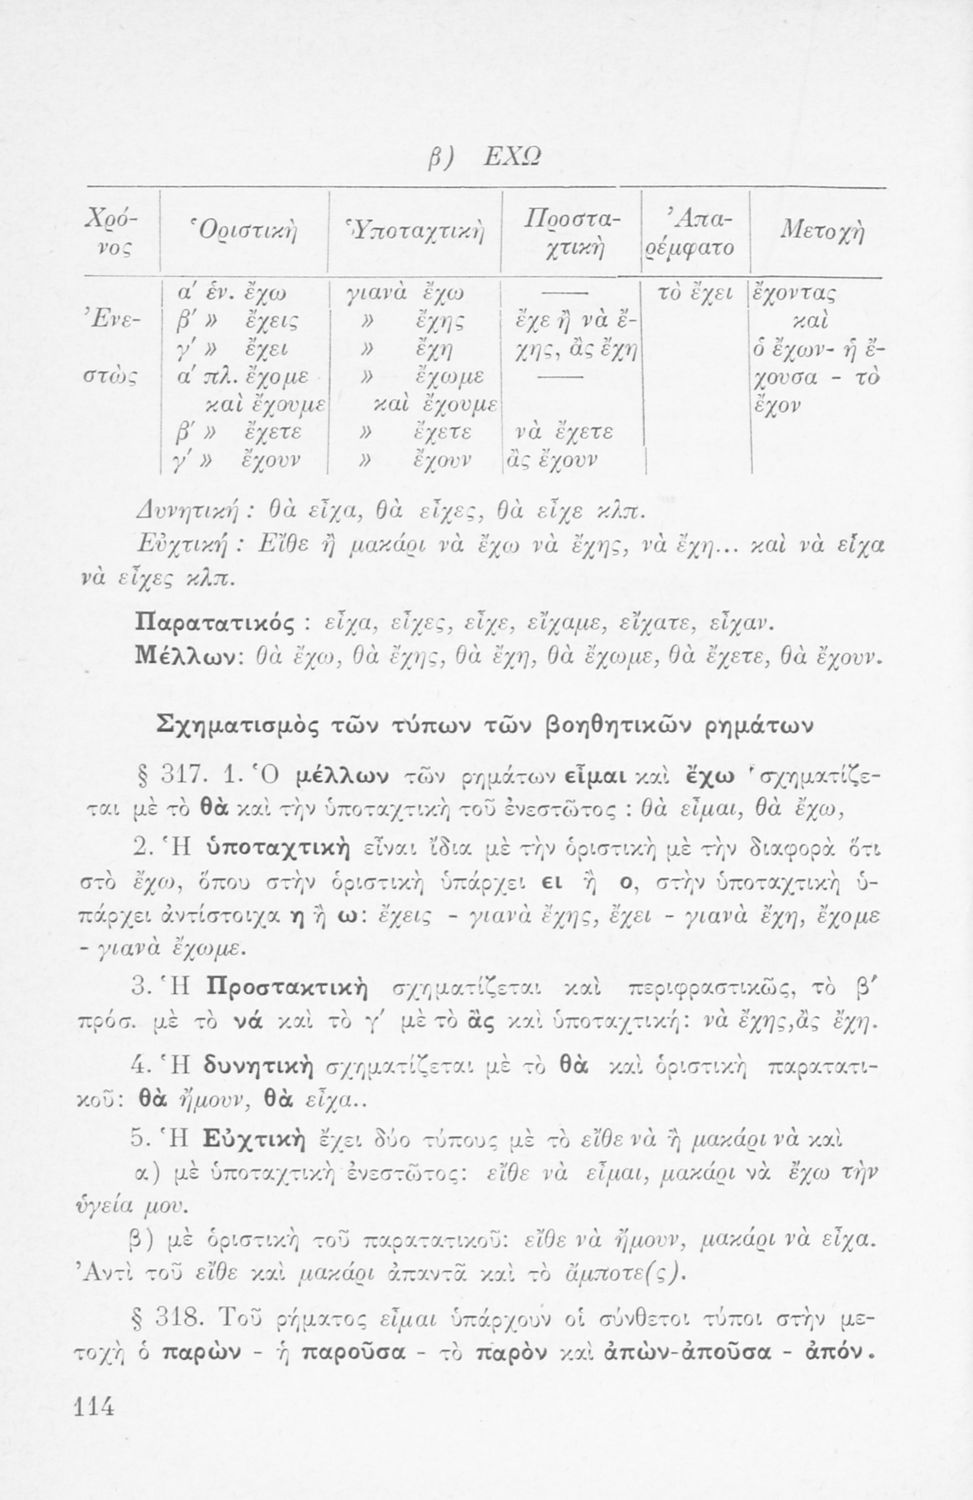 β) ΕΧΩ
Χρό- Ὁριστικὴ Ὑποταχτικὴ Προστα- Ἀπα- Μετοχὴ
νος χτικὴ ρέμφατο
α' ἑν. ἔχω γιανὰ ἔχω —— τὸ ἔχει ἔχοντας
Ἐνε- β' » ἔχεις » ἔχῃς ἔχε ἢ νὰ ἔ- καὶ
γ' » ἔχει » ἔχῃ χῃς, ἂς ἔχῃ ὁ ἔχων- ἡ ἔ-
στὼς α' πλ. ἔχομε » ἔχωμε —— χουσα - τὸ
καὶ ἔχουμε καὶ ἔχουμε ἔχον
β' » ἔχετε » ἔχετε νὰ ἔχετε
γ' » ἔχουν » ἔχουν ἂς ἔχουν
Δυνητική : θὰ εἶχα, θὰ εἶχες, θὰ εἶχε κλπ.
Εὐχτική : Εἴθε ἢ μακάρι νὰ ἔχω νὰ ἔχῃς, νὰ ἔχῃ... καὶ νὰ εἶχα
νὰ εἶχες κλπ.
Παρατατικός : εἶχα, εἶχες, εἶχε, εἴχαμε, εἴχατε, εἶχαν.
Μέλλων: θὰ ἔχω, θὰ ἔχῃς, θὰ ἔχῃ, θὰ ἔχωμε, θὰ ἔχετε, θὰ ἔχουν.
Σχηματισμὸς τῶν τύπων τῶν βοηθητικῶν ρημάτων
§ 317. 1. Ὁ μέλλων τῶν ρημάτων εἶμαι καὶ ἔχω σχηματίζε-
ται μὲ τὸ θὰ καὶ τὴν ὑποταχτικὴ τοῦ ἐνεστῶτος : θὰ εἶμαι, θὰ ἔχω,
2. Ἡ ὑποταχτικὴ εἶναι ἴδια μὲ τὴν ὁριστικὴ μὲ τὴν διαφορὰ ὅτι
στὸ ἔχω, ὅπου στὴν ὁριστικὴ ὑπάρχει ει ἢ ο, στὴν ὑποταχτικὴ ὑ-
πάρχει ἀντίστοιχα η ἢ ω: ἔχεις - γιανὰ ἔχῃς, ἔχει - γιανὰ ἔχῃ, ἔχομε
- γιανὰ ἔχωμε.
3. Ἡ Προστακτικὴ σχηματίζεται καὶ περιφραστικῶς, τὸ β'
πρόσ. μὲ τὸ νά καὶ τὸ γ' μὲ τὸ ἂς καὶ ὑποταχτική: νὰ ἔχῃς,ἂς ἔχῃ.
4. Ἡ δυνητικὴ σχηματίζεται μὲ τὸ θὰ καὶ ὁριστικὴ παρατατι-
κοῦ: θὰ ἤμουν, θὰ εἶχα..
5. Ἡ Εὐχτικὴ ἔχει δύο τύπους μὲ τὸ εἴθε νὰ ἢ μακάρι νὰ καὶ
α) μὲ ὑποταχτικὴ ἐνεστῶτος: εἴθε νὰ εἶμαι, μακάρι νὰ ἔχω τὴν
ὑγεία μου.
β) μὲ ὁριστικὴ τοῦ παρατατικοῦ: εἴθε νὰ ἤμουν, μακάρι νὰ εἶχα.
Ἀντὶ τοῦ εἴθε καὶ μακάρι ἀπαντᾶ καὶ τὸ ἄμποτε(ς).
§ 318. Τοῦ ρήματος εἶμαι ὑπάρχουν οἱ σύνθετοι τύποι στὴν με-
τοχὴ ὁ παρὼν - ἡ παροῦσα - τὸ παρὸν καὶ ἀπὼν-ἀποῦσα - ἀπόν.
114